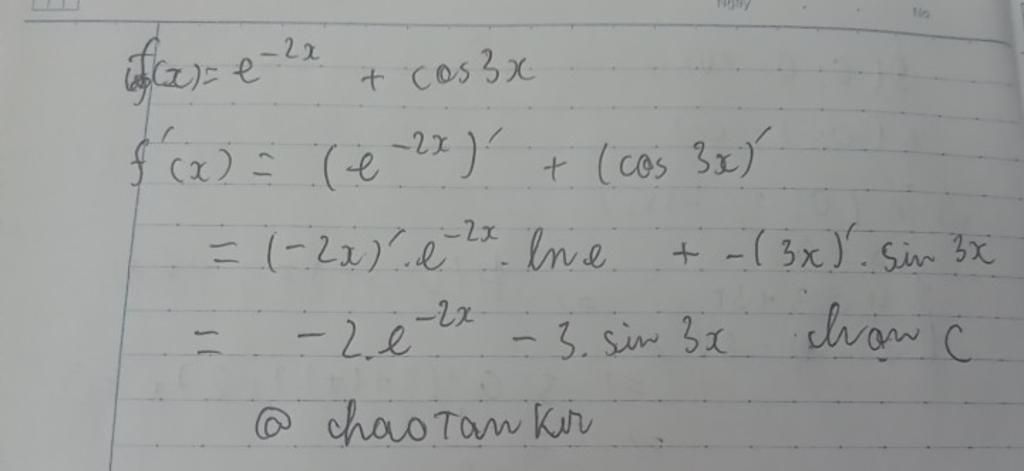 Ngày No
f(x) = e^{-2x} + cos 3x
f'(x) = (e^{-2x})' + (cos 3x)'
= (-2x)'.e^{-2x}.ln e + -(3x)'.sin 3x
= -2.e^{-2x} - 3.sin 3x chọn C
@ chaoTanKir